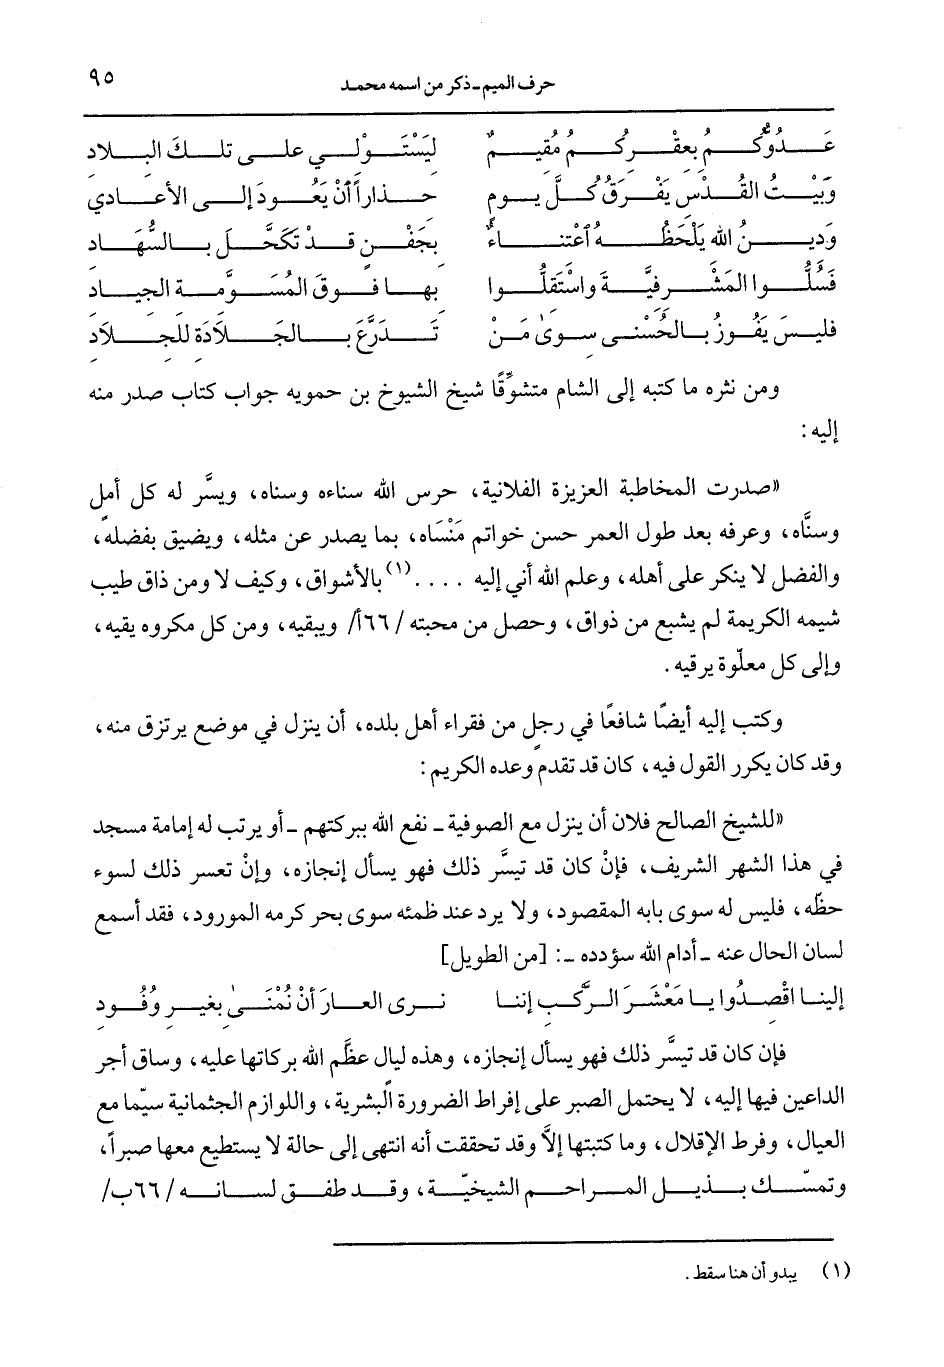 حرف الميم ـ ذكر من اسمه محمد ٩٥
عَــدُوُّكُــمُ بعقْــرِكُــمُ مُقيــمٌ لَيَسْتَــوْلِــي علــى تلــكَ البــلادِ
وَبَيْــتُ القُــدْسِ يَفْــرَقُ كُــلَّ يــوم حــذاراً أَنْ يَعُــودَ إلــى الأعــادي
وَديــنُ الله يَلْحَظُــهُ اعْتنــاءٌ بجَفْــنٍ قــدْ تكَحَّــلَ بــالسُّهــادِ
فَسُلُّــوا المَشْــرفيَّــةَ واسْتَقلُّــوا بهــا فــوقَ المُسَــوَّمــة الجيــادِ
فليــسَ يَفُــوزُ بــالحُسْنــى ســوى مَــنْ تَــدَرَّعَ بــالجَــلادَة للجــلادِ
ومن نثره ما كتبه إلى الشام متشوِّقًا شيخ الشيوخ بن حمويه جواب كتاب صدر منه
إليه:
«صدرت المخاطبة العزيزة الفلانية، حرس الله سناءه وسناه، ويسَّر له كل أملٍ
وسنَّاه، وعرفه بعد طول العمر حسن خواتم مَنْسَاه، بما يصدر عن مثله، ويضيق بفضله،
والفضل لا ينكر على أهله، وعلم الله أني إليه ....(١) بالأشواق، وكيف لا ومن ذاق طيب
شيمه الكريمة لم يشبع من ذواق، وحصل من محبته /٦٦أ/ ويبقيه، ومن كل مكروه يقيه،
وإلى كل معلّوة يرقيه.
وكتب إليه أيضًا شافعًا في رجل من فقراء أهل بلده، أن ينزل في موضع يرتزق منه،
وقد كان يكرر القول فيه، كان قد تقدم وعده الكريم:
«للشيخ الصالح فلان أن ينزل مع الصوفية ـ نفع الله ببركتهم ـ أو يرتب له إمامة مسجد
في هذا الشهر الشريف، فإنْ كان قد تيسَّر ذلك فهو يسأل إنجازه، وإنْ تعسر ذلك لسوء
حظّه، فليس له سوى بابه المقصود، ولا يرد عند ظمئه سوى بحر كرمه المورود، فقد أسمع
لسان الحال عنه ـ أدام الله سؤدده ـ: [من الطويل]
إلينــا اقْصِــدُوا يــا مَعْشَــرَ الــرَّكــبِ إننــا نــرى العــارَ أنْ نُمْنَــى بغيــر وُفُــودِ
فإن كان قد تيسَّر ذلك فهو يسأل إنجازه، وهذه ليال عظَّم الله بركاتها عليه، وساق أجر
الداعين فيها إليه، لا يحتمل الصبر على إفراط الضرورة البشرية، واللوازم الجثمانية سيّما مع
العيال، وفرط الإقلال، وما كتبتها إلاَّ وقد تحققت أنه انتهى إلى حالة لا يستطيع معها صبراً،
وتمسّــك بــذيــل المــراحــم الشيخيّــة، وقــد طفــق لســانــه /٦٦ب/
(١) يبدو أن هنا سقط.